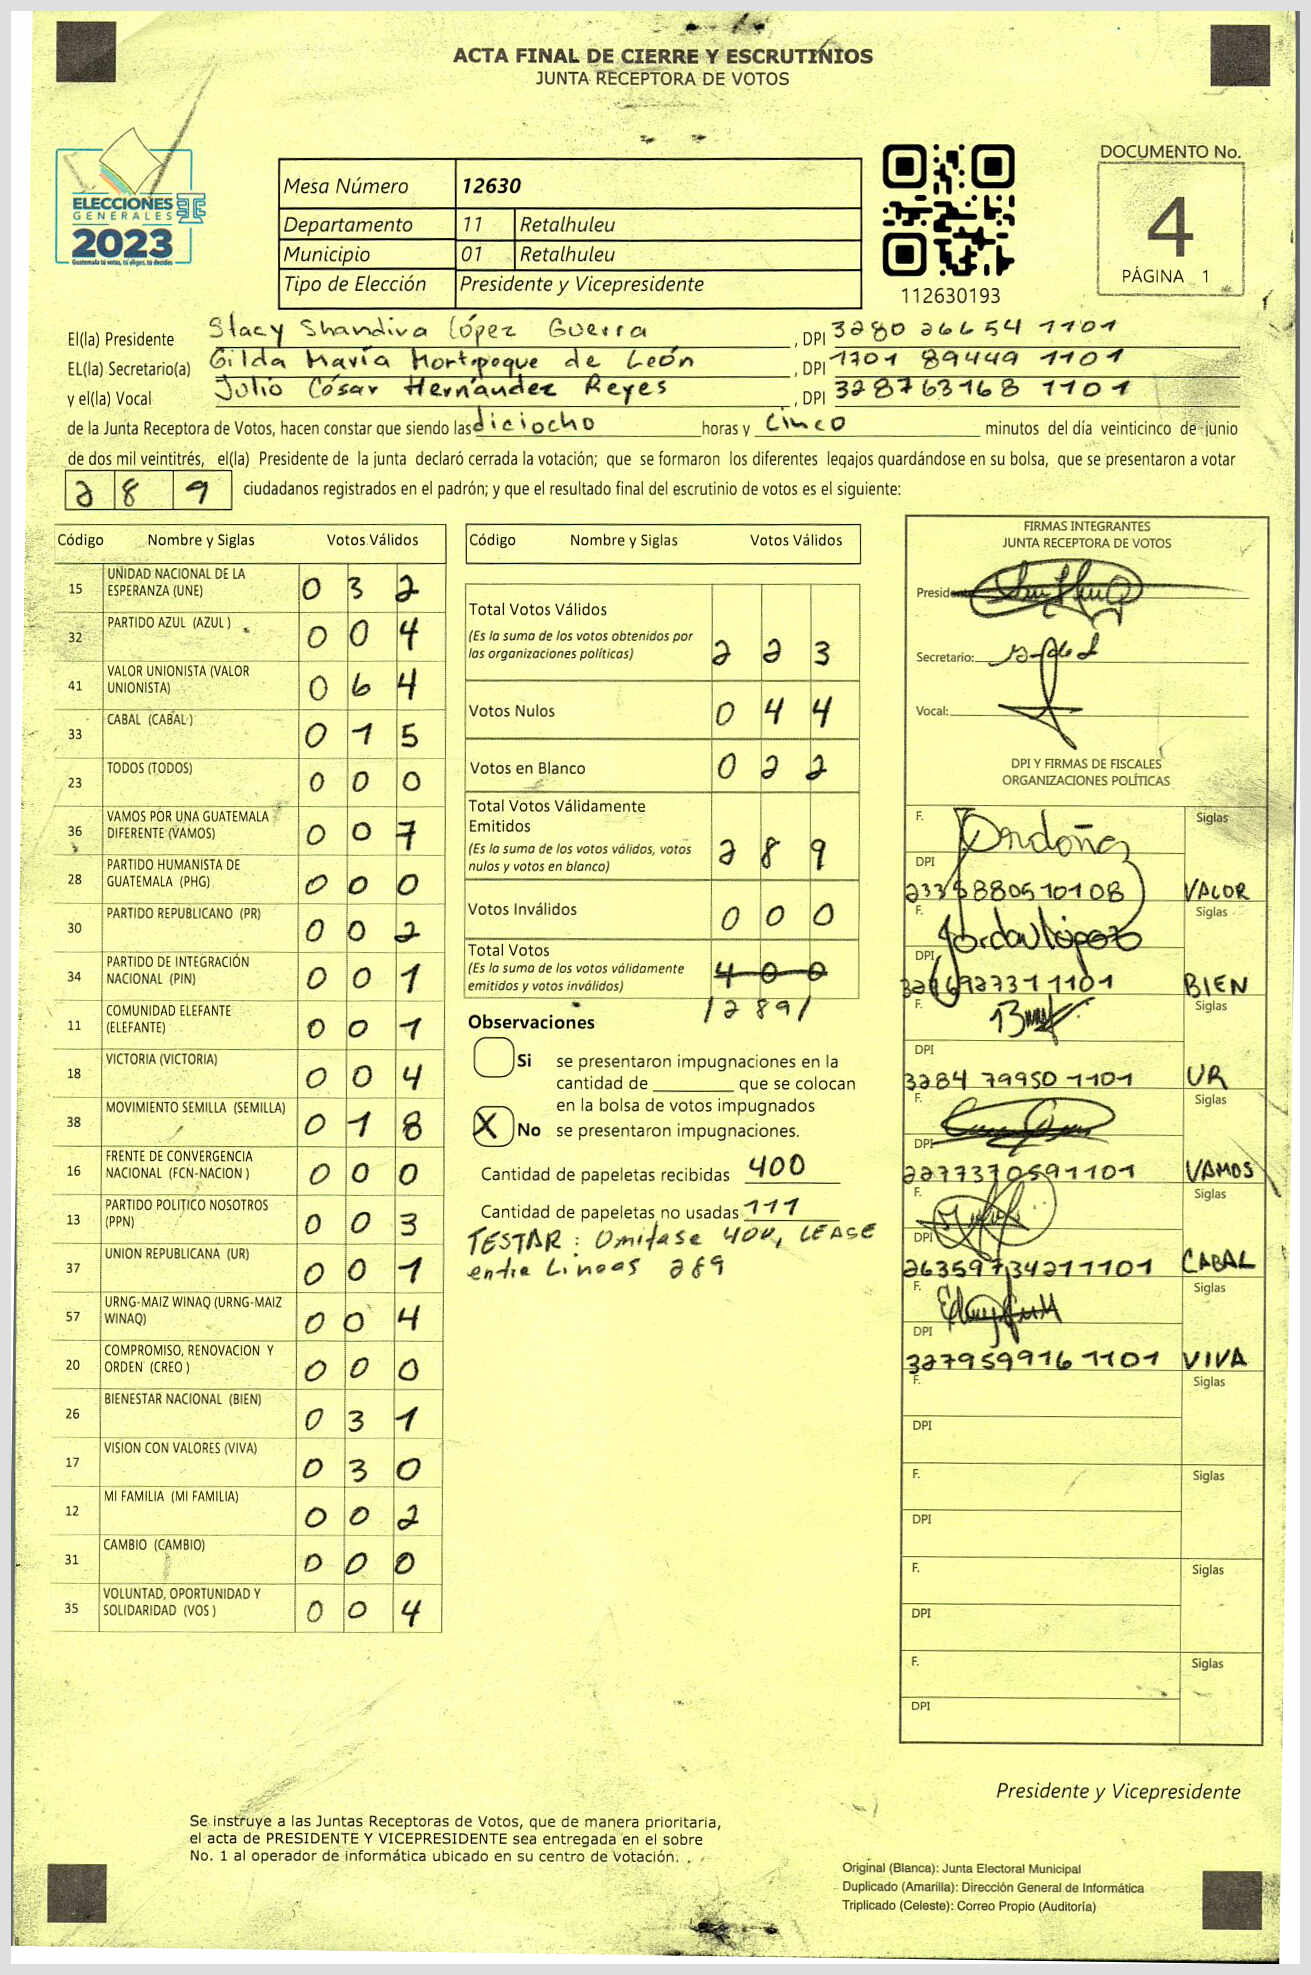 ACTA FINAL DE CIERRE Y ESCRUTINIOS
JUNTA RECEPTORA DE VOTOS
ELECCIONES
GENERALES
2023
Guatemala tú votas, tú eliges, tú decides
Mesa Número 12630
Departamento 11 Retalhuleu
Municipio 01 Retalhuleu
Tipo de Elección Presidente y Vicepresidente
112630193
DOCUMENTO No.
4
PÁGINA 1
El(la) Presidente Stacy Shandiva López Guerra , DPI 3280 26654 1101
EL(la) Secretario(a) Gilda María Mortpoque de León , DPI 1701 89449 1101
y el(la) Vocal Julio César Hernández Reyes , DPI 328763168 1101
de la Junta Receptora de Votos, hacen constar que siendo las diciocho horas y cinco minutos del día veinticinco de junio
de dos mil veintitrés, el(la) Presidente de la junta declaró cerrada la votación; que se formaron los diferentes legajos guardándose en su bolsa, que se presentaron a votar
289 ciudadanos registrados en el padrón; y que el resultado final del escrutinio de votos es el siguiente:
Código Nombre y Siglas Votos Válidos
15 UNIDAD NACIONAL DE LA ESPERANZA (UNE) 0 3 2
32 PARTIDO AZUL (AZUL ) 0 0 4
41 VALOR UNIONISTA (VALOR UNIONISTA) 0 6 4
33 CABAL (CABAL ) 0 1 5
23 TODOS (TODOS) 0 0 0
36 VAMOS POR UNA GUATEMALA DIFERENTE (VAMOS) 0 0 7
28 PARTIDO HUMANISTA DE GUATEMALA (PHG) 0 0 0
30 PARTIDO REPUBLICANO (PR) 0 0 2
34 PARTIDO DE INTEGRACIÓN NACIONAL (PIN) 0 0 1
11 COMUNIDAD ELEFANTE (ELEFANTE) 0 0 1
18 VICTORIA (VICTORIA) 0 0 4
38 MOVIMIENTO SEMILLA (SEMILLA) 0 1 8
16 FRENTE DE CONVERGENCIA NACIONAL (FCN-NACION ) 0 0 0
13 PARTIDO POLITICO NOSOTROS (PPN) 0 0 3
37 UNION REPUBLICANA (UR) 0 0 1
57 URNG-MAIZ WINAQ (URNG-MAIZ WINAQ) 0 0 4
20 COMPROMISO, RENOVACION Y ORDEN (CREO ) 0 0 0
26 BIENESTAR NACIONAL (BIEN) 0 3 1
17 VISION CON VALORES (VIVA) 0 3 0
12 MI FAMILIA (MI FAMILIA) 0 0 2
31 CAMBIO (CAMBIO) 0 0 0
35 VOLUNTAD, OPORTUNIDAD Y SOLIDARIDAD (VOS ) 0 0 4
Código Nombre y Siglas Votos Válidos
Total Votos Válidos
(Es la suma de los votos obtenidos por
las organizaciones políticas) 2 2 3
Votos Nulos 0 4 4
Votos en Blanco 0 2 2
Total Votos Válidamente
Emitidos
(Es la suma de los votos válidos, votos
nulos y votos en blanco) 2 8 9
Votos Inválidos 0 0 0
Total Votos
(Es la suma de los votos válidamente
emitidos y votos inválidos) 4 0 0
/2 89/
Observaciones
Si se presentaron impugnaciones en la
cantidad de ________ que se colocan
en la bolsa de votos impugnados
X No se presentaron impugnaciones.
Cantidad de papeletas recibidas 400
Cantidad de papeletas no usadas 111
TESTAR: Omitase 400, LEASE
entre Lineas 289
FIRMAS INTEGRANTES
JUNTA RECEPTORA DE VOTOS
Presidente:
Secretario:
Vocal:
DPI Y FIRMAS DE FISCALES
ORGANIZACIONES POLÍTICAS
F. Ordoñez Siglas
DPI
VALOR
F. Jordan López Siglas
DPI
BIEN
F. Siglas
DPI
3284 79950 1101 UR
F. Siglas
DPI
2277370591101 VAMOS
F. Siglas
DPI
2635973421 1101 CABAL
F. Siglas
DPI
3279599161101 VIVA
F. Siglas
DPI
F. Siglas
DPI
F. Siglas
DPI
F. Siglas
DPI
Presidente y Vicepresidente
Se instruye a las Juntas Receptoras de Votos, que de manera prioritaria,
el acta de PRESIDENTE Y VICEPRESIDENTE sea entregada en el sobre
No. 1 al operador de informática ubicado en su centro de votación.
Original (Blanca): Junta Electoral Municipal
Duplicado (Amarilla): Dirección General de Informática
Triplicado (Celeste): Correo Propio (Auditoría)